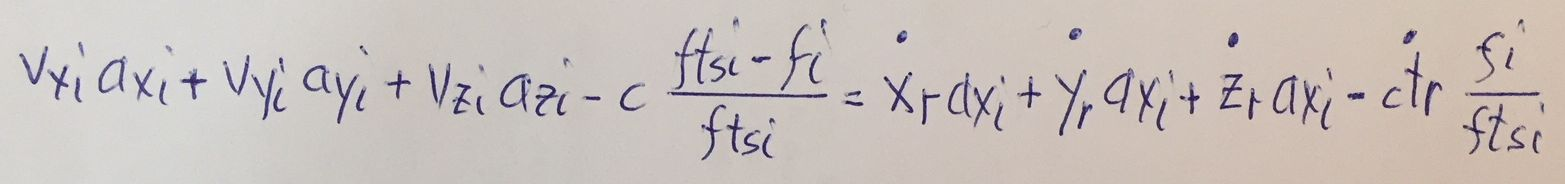 $v_{xi} a_{xi} + v_{yi} a_{yi} + v_{zi} a_{zi} - c \frac{f_{tsi} - f_i}{f_{tsi}} = \dot{x}_r a_{xi} + \dot{y}_r a_{xi} + \dot{z}_r a_{xi} - c\dot{t}_r \frac{f_i}{f_{tsi}}$